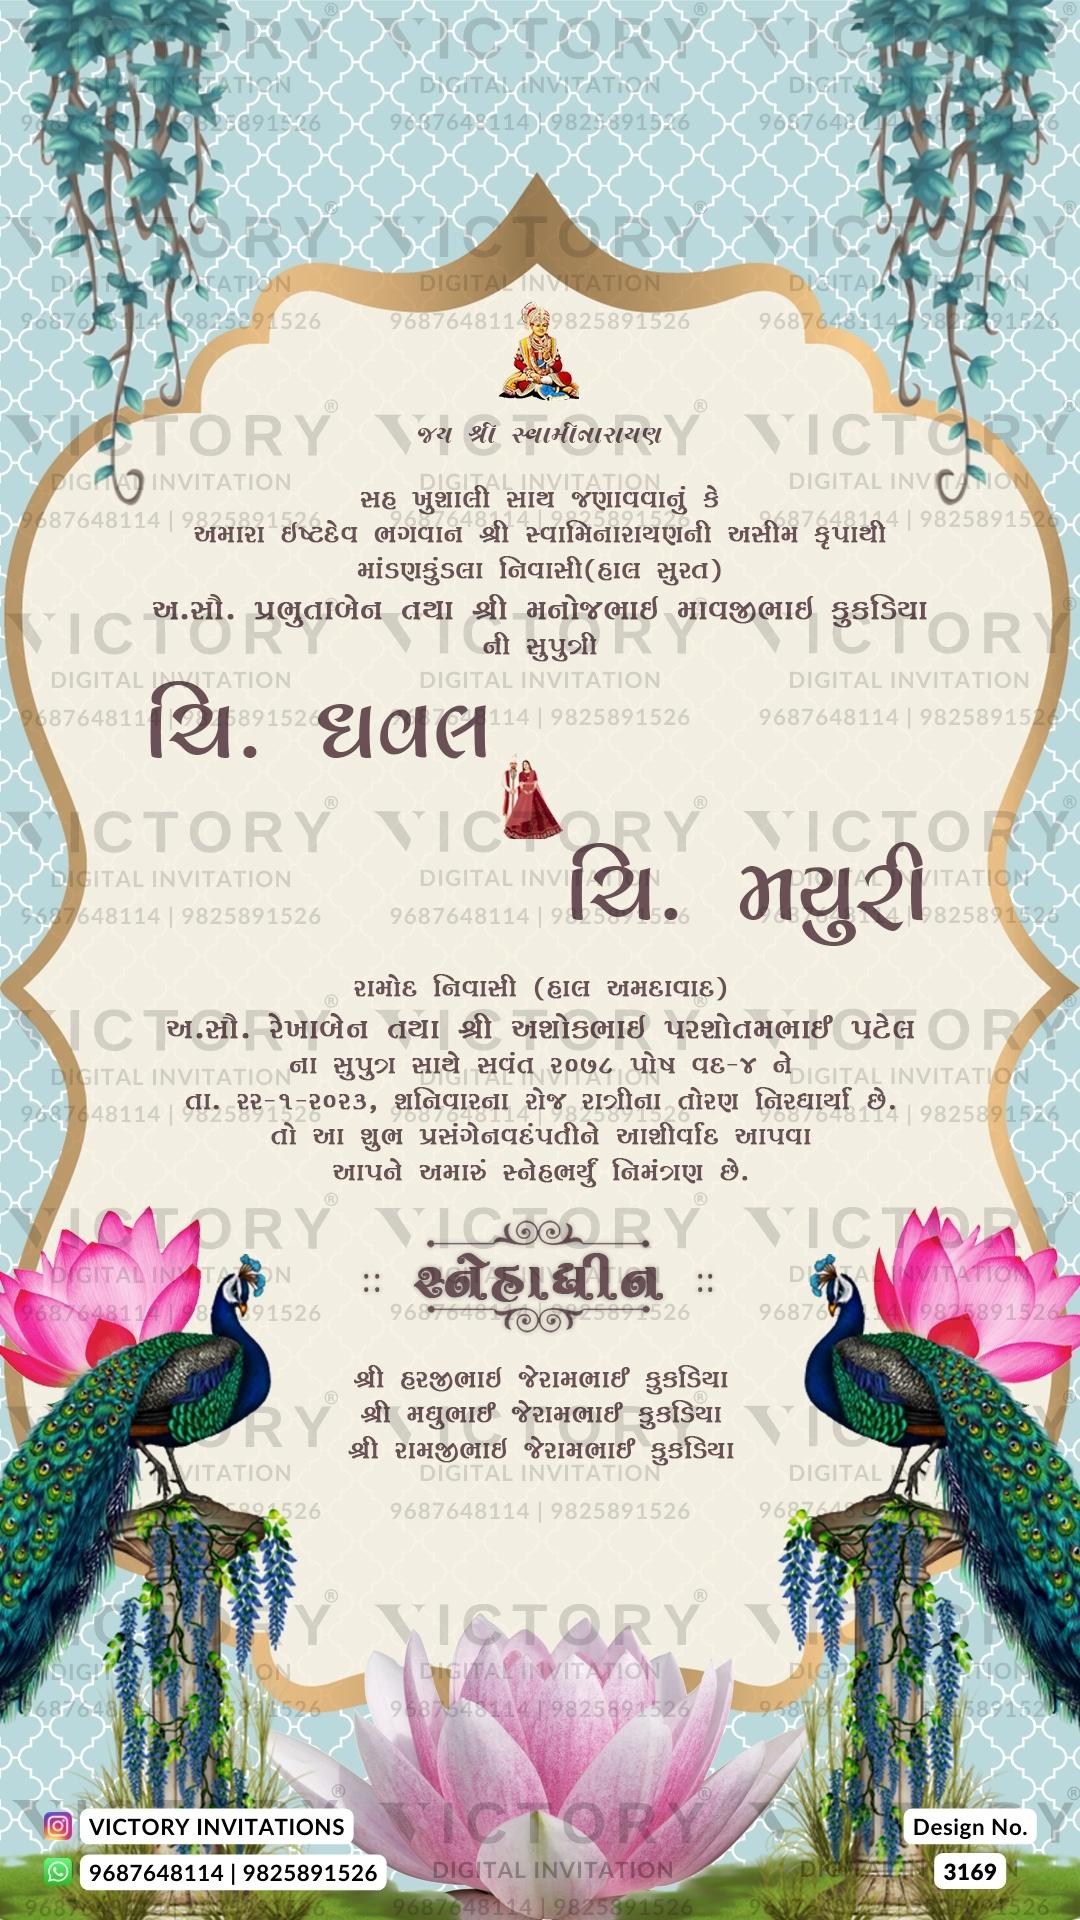 જય શ્રી સ્વામીનારાયણ
સહ ખુશાલી સાથ જણાવવાનું કે
અમારા ઈષ્ટદેવ ભગવાન શ્રી સ્વામિનારાયણની અસીમ કૃપાથી
માંડણકુંડલા નિવાસી(હાલ સુરત)
અ.સૌ. પ્રભુતાબેન તથા શ્રી મનોજભાઇ માવજીભાઇ કુકડિયા
ની સુપુત્રી
ચિ. ધવલ
ચિ. મયુરી
રામોદ નિવાસી (હાલ અમદાવાદ)
અ.સૌ. રેખાબેન તથા શ્રી અશોકભાઇ પરશોતમભાઈ પટેલ
ના સુપુત્ર સાથે સવંત ૨૦૭૮ પોષ વદ-૪ ને
તા. ૨૨-૧-૨૦૨૩, શનિવારના રોજ રાત્રીના તોરણ નિરધાર્યા છે.
તો આ શુભ પ્રસંગેનવદંપતીને આશીર્વાદ આપવા
આપને અમારું સ્નેહભર્યું નિમંત્રણ છે.
:: સ્નેહાધીન ::
શ્રી હરજીભાઇ જેરામભાઈ કુકડિયા
શ્રી મધુભાઈ જેરામભાઈ કુકડિયા
શ્રી રામજીભાઇ જેરામભાઈ કુકડિયા
VICTORY INVITATIONS
9687648114 | 9825891526
Design No.
3169
VICTORY®
DIGITAL INVITATION
9687648114 | 9825891526